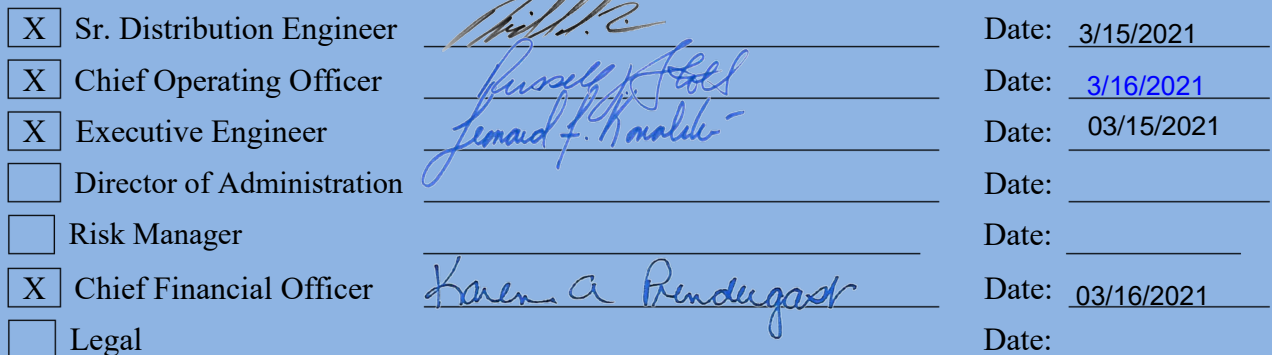 X Sr. Distribution Engineer Date: 3/15/2021
X Chief Operating Officer Russell Date: 3/16/2021
X Executive Engineer Leonard F. Date: 03/15/2021
Director of Administration Date:
Risk Manager Date:
X Chief Financial Officer Karen A Prendergast Date: 03/16/2021
Legal Date: